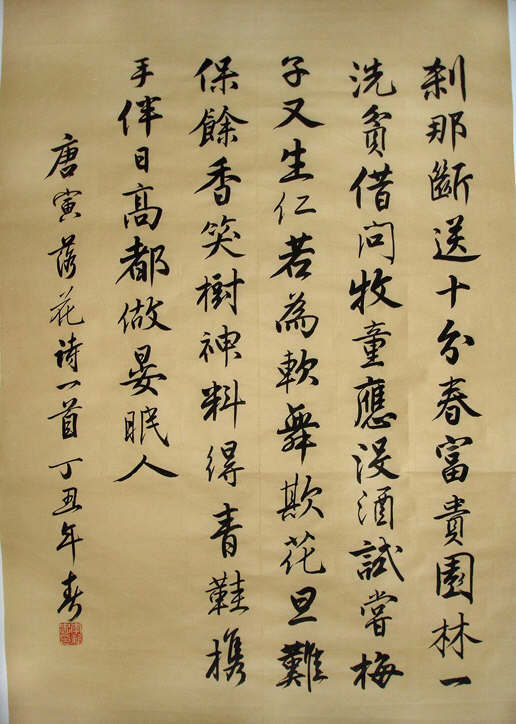 刹那斷送十分春富貴園林一
洗貧借問牧童應没酒試嘗梅
子又生仁若為軟舞欺花旦難
保餘香笑樹神料得青鞋携
手伴日高都做晏眠人
唐寅落花诗一首丁丑年春